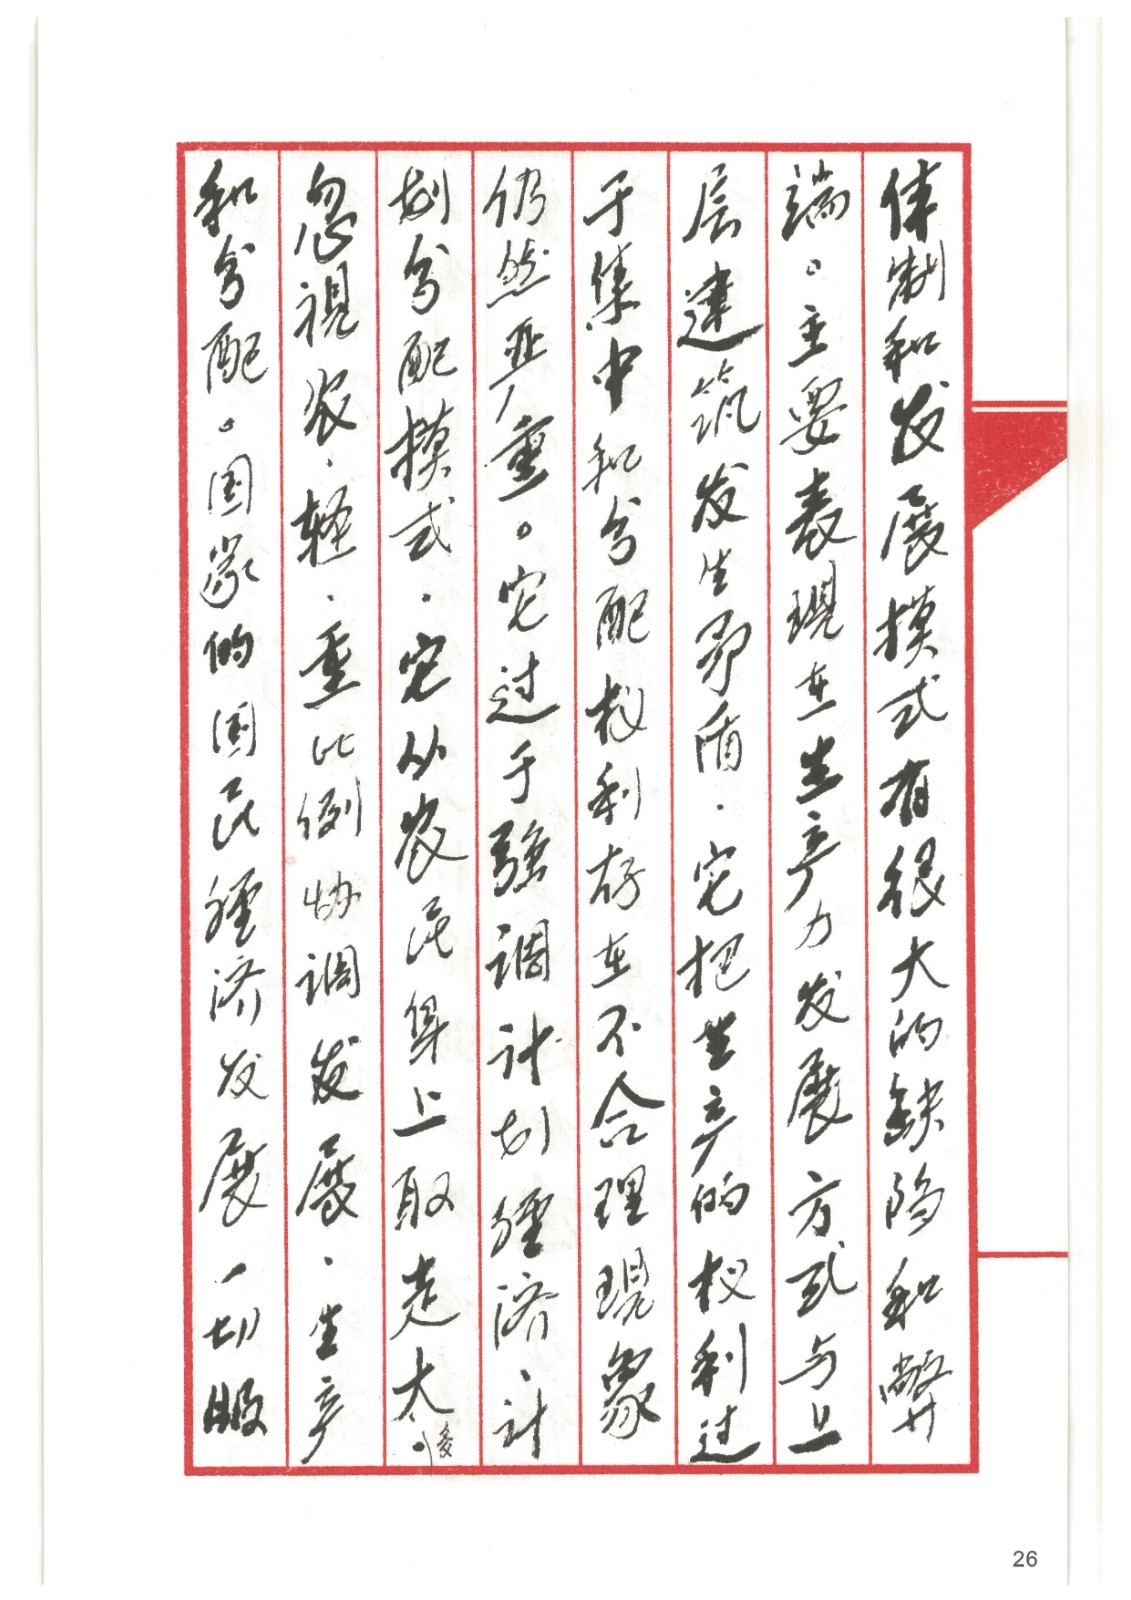 体制和发展模式有很大的缺陷和弊
端。主要表现在生产力发展方式与上
层建筑发生矛盾.它把生产的权利过
于集中和分配权利存在不合理现象
仍然严重。它过于强调计划经济.计
划分配模式.它从农民身上取走太多。
忽視农.轻.重比例协调发展.生产
和分配。国家的国民经济发展一切服
26